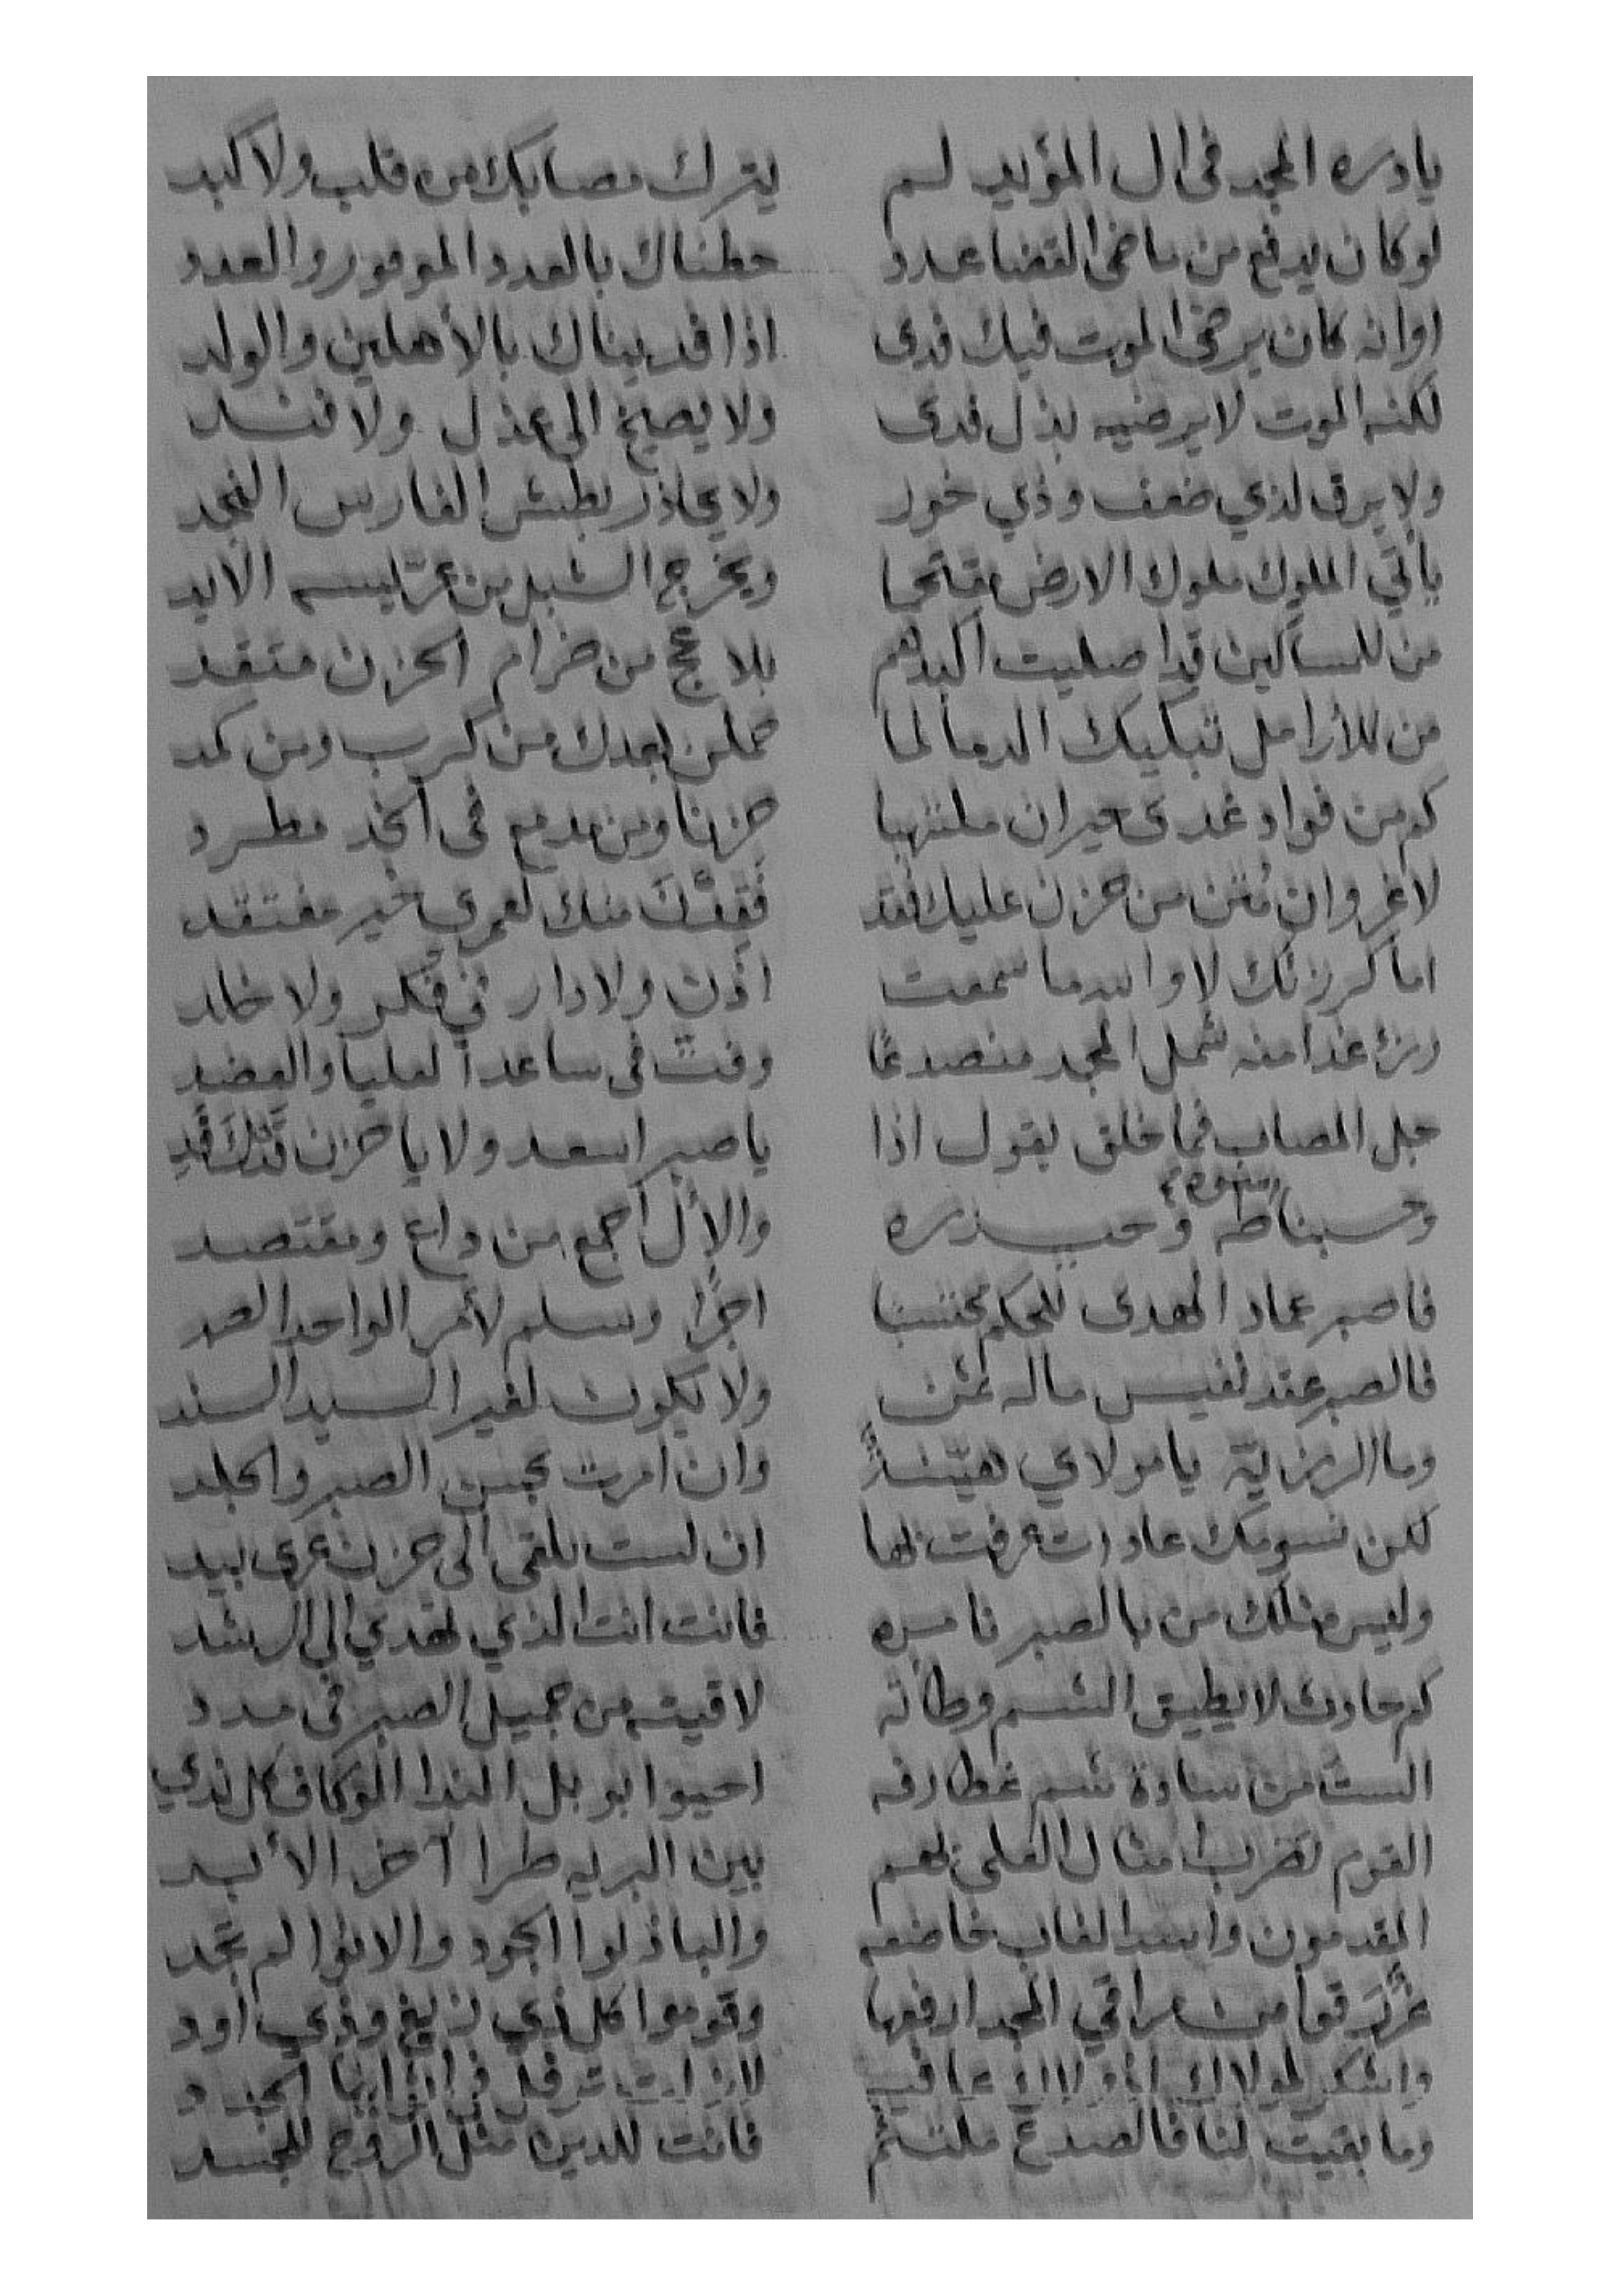 يادره المجد في ال المؤيد لم يترك مصابك من قلب ولا كبد
لوكان يدفع من ماضي القضا عدد حطناك بالعدد الموفور والعدد
اوانه كان يرضى الموت فيك فدى اذا فديناك بالأهلين والولد
لكنه الموت لا يرضيه بذل فدى ولا يصيخ الى عذل ولا فند
ولا يرق لذي ضعف وذي خور ولا يحاذر بطش الفارس النجد
يأتي الملوك ملوك الارض مقتحما ويخرج الشبل من عرّيسه الأبد
من للمساكين قد اصليت اكبدهم بلاعج من ضرام الحزن متقد
من للأرامل تبكيك الدما لما حملن بعدك من كرب ومن كمد
كم من فواد غدى حيران ملتهبا حزنا ومن مدمع في الخد مطرد
لاغرو ان متن من حزن عليك فقد فقدنك منك لعمري خير مفتقد
اما كرزئك لا والله ما سمعت اذن ولا دار في فكر ولا خلد
رزء غدا منه شمل المجد منصدعًا وفتّ في ساعد العليا والعضد
جل المصاب فما خلق يقول اذا يا صبر اسعد ولا يا حزن قدك قد
وحسبنا طه وحيدره والأل اجمع من داع ومقتصد
فاصبر عماد الهدى للحكم محتسبا اجرًا وسلم لأمر الواحد الصمد
فالصبر عقد نفيس ماله ثمن ولا يكون لغير السيد السند
وما الرزيّة يا مولاي هيّنة وان امرت بحسن الصبر والجلد
لكن نسومك عادات عرفت بها ان لست تلقى الى حزن عرى بيد
وليس مثلك من بالصبر نامره فانت انت الذي تهدي الى الرشد
كم حادث لا يطيق الشم وطأته لاقيته من جميل الصبر في مدد
الست من سادة شم غطارفه احيوا بوبل الندا الوكاف كل ندي
القوم تضرب امثال العلى بهم بين البريه طرا آخر الأبد
المقدمون واسد الغاب خاضعه والباذلوا الجود والانوا لم تجد
من مراقي المجد ارفعها وقوموا كل ذي زيغ وذي اود
واشكر لمولاك عافيه لازلت ترفل في
وما بقيت لنا فالصدع ملتئم فانت للدين مثل الروح للجسد